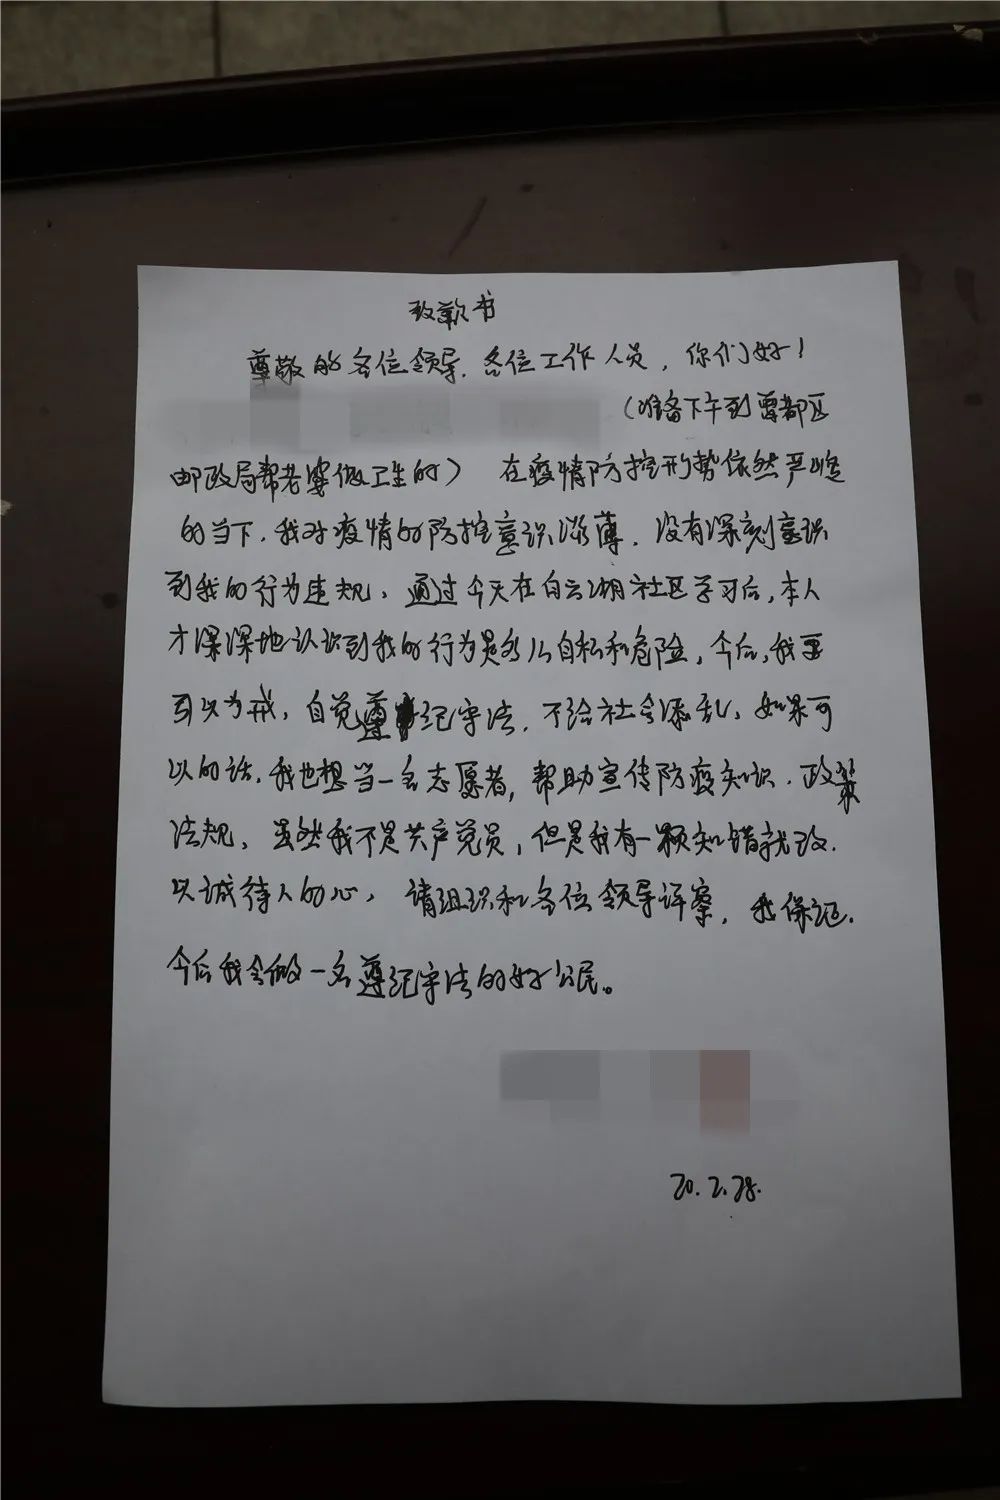 致歉书
尊敬的各位领导.各位工作人员，你们好！
（准备下午到曾都区
邮政局帮老婆做卫生的） 在疫情防控形势依然严峻
的当下.我对疫情的防控意识淡薄.没有深刻意识
到我的行为违规，通过今天在白云湖社区学习后,本人
才深深地认识到我的行为是多么自私和危险，今后,我要
引以为戒，自觉遵纪守法.不给社会添乱，如果可
以的话.我也想当一名志愿者，帮助宣传防疫知识.政策
法规，虽然我不是共产党员，但是我有一颗知错就改.
以诚待人的心，请组织和各位领导评案，我保证.
今后我会做一名遵纪守法的好公民。
20.2.28.